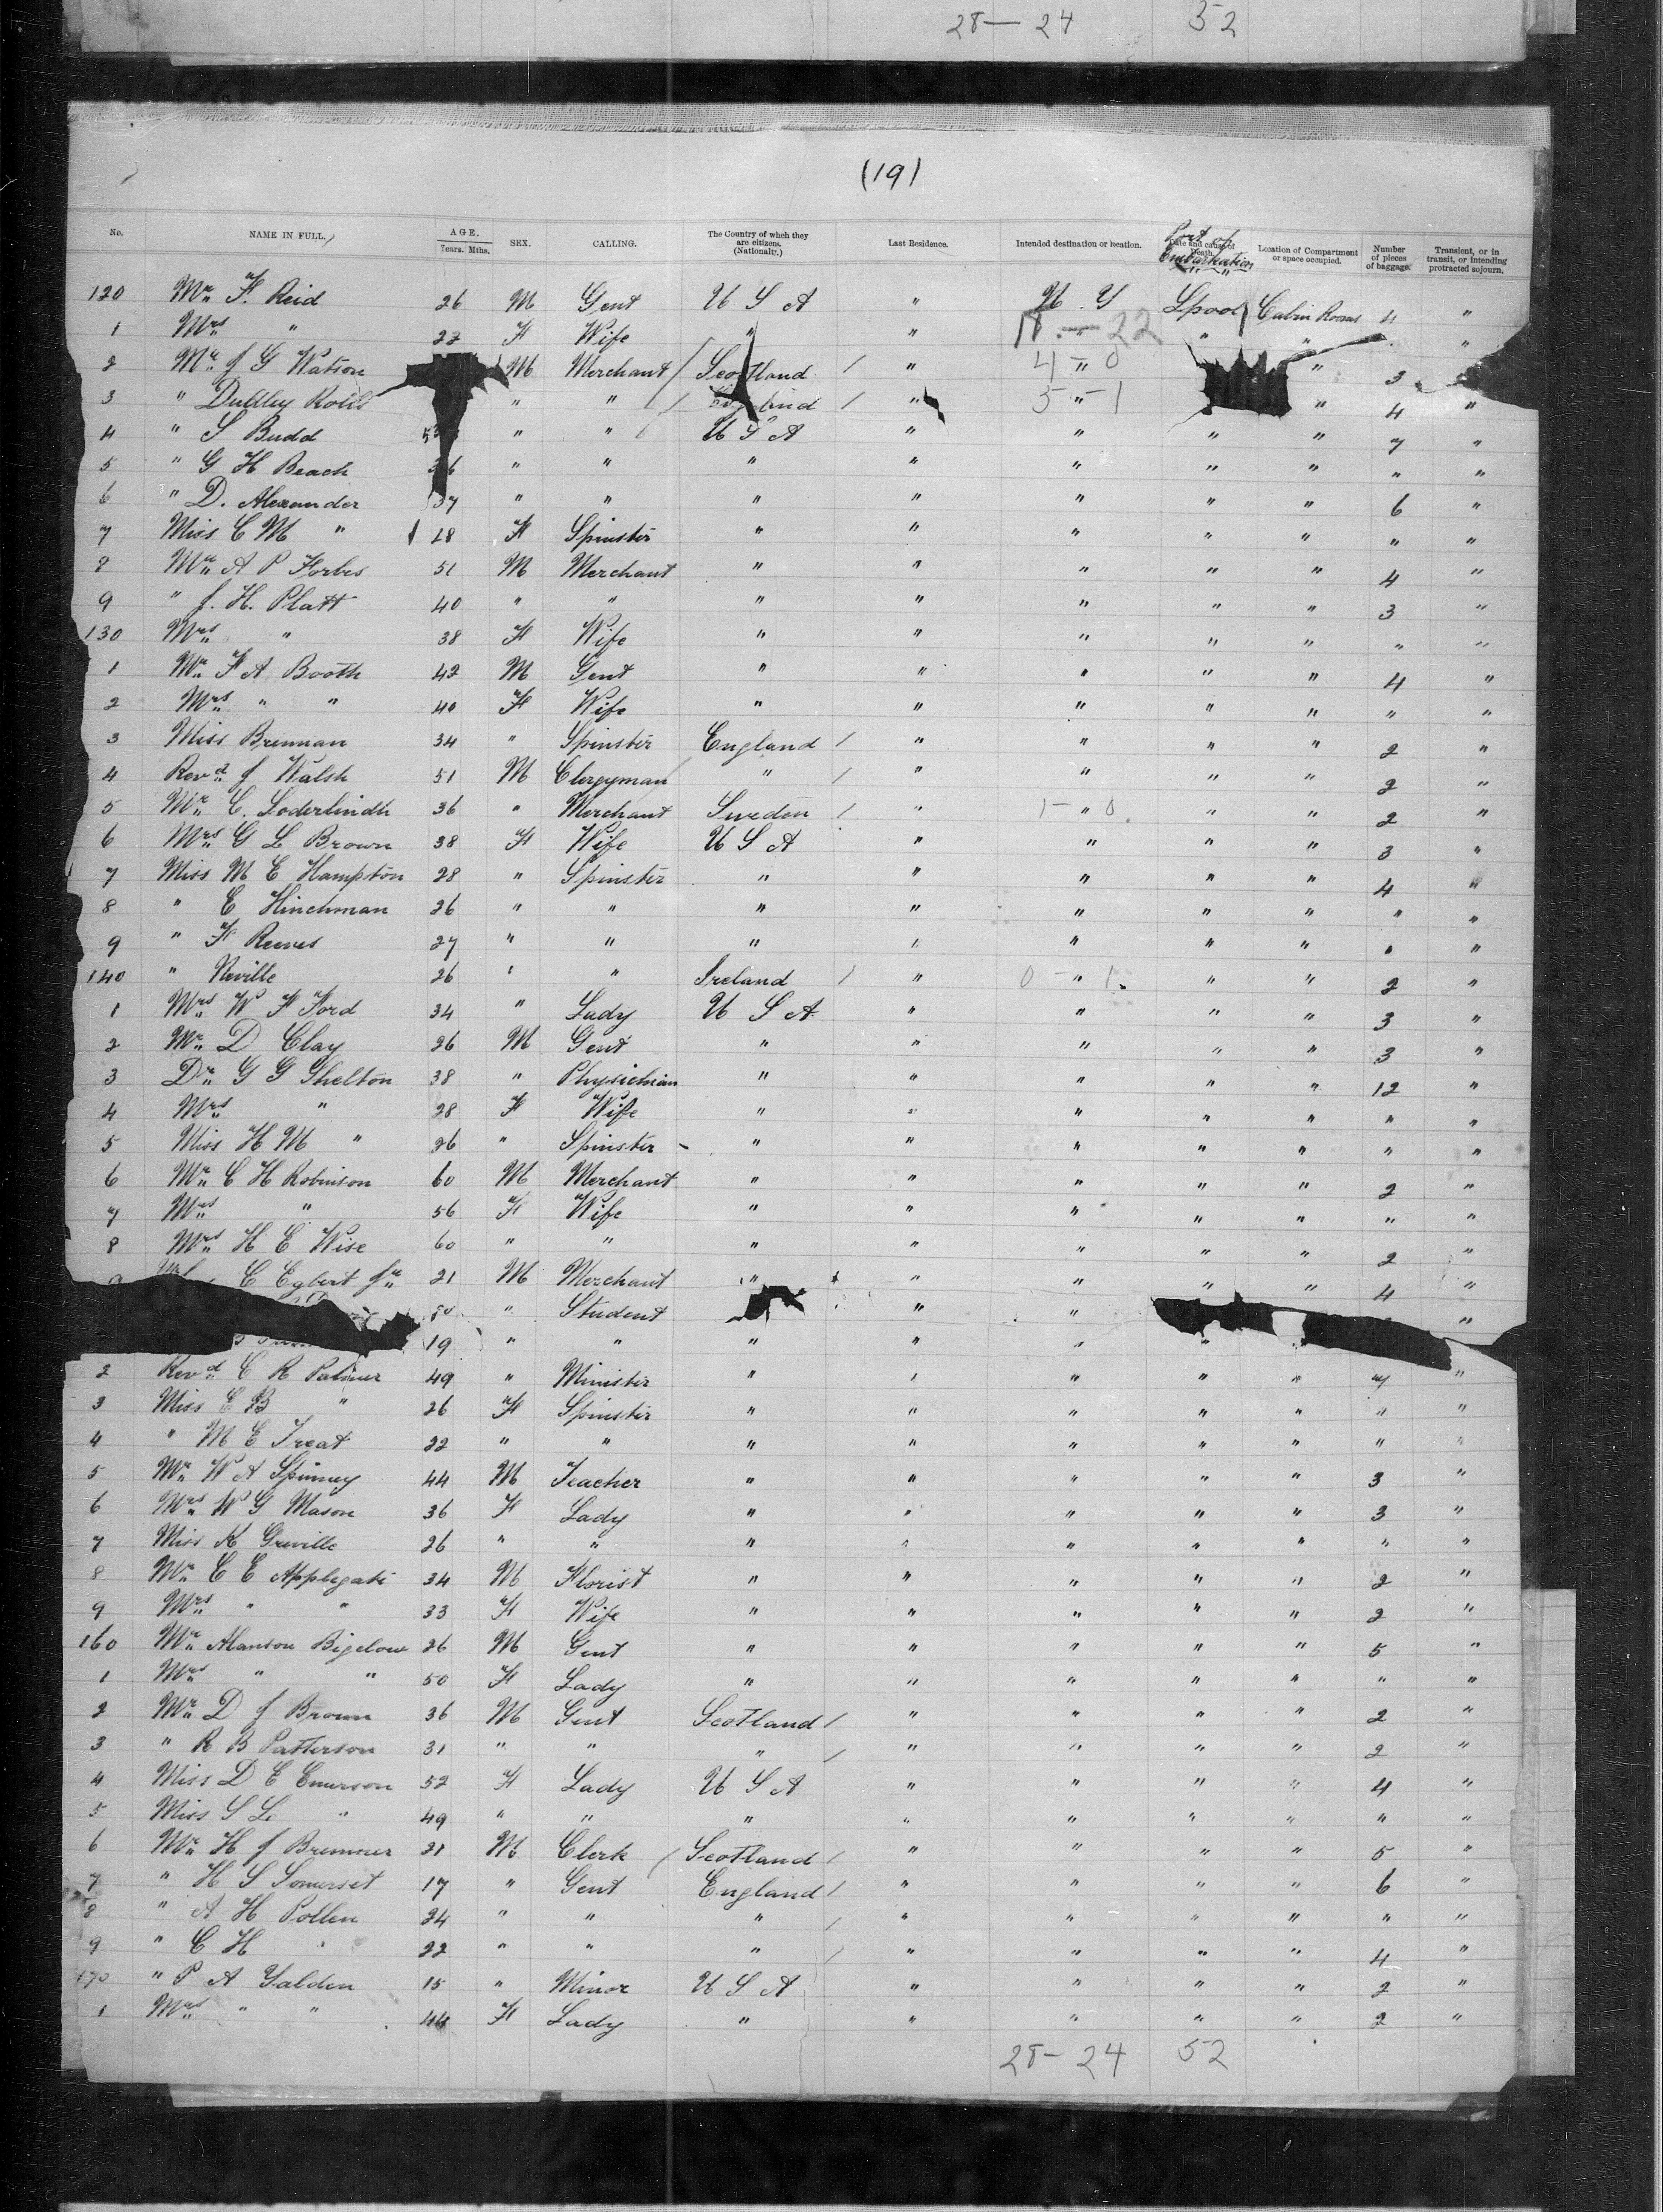 28 — 24 52
(191
No. NAME IN FULL. AGE. Years. Mths. SEX. CALLING. The Country of which they are citizens. (Nationality.) Last Residence. Intended destination or location. Date and cause of Death. Port of Embarkation Location of Compartment or space occupied. Number of pieces of baggage. Transient, or in transit, or intending protracted sojourn.
120 Mr F. Reid 26 M Gent U S A " N. Y Lpool Cabin Rooms 4 "
1 Mrs " 22 F Wife " " " " " "
18 — 22
2 Mr J G Watson M Merchant Scotland / " " " 3
4 — 0
3 " Dudley " " England / " " " 4 "
3 — 1
4 " S Budd " " U S A " " " " 7 "
5 " G H Beach 36 " " " " " " " " "
6 " D. Alexander 37 " " " " " " " 6 "
7 Miss C M " 18 F Spinster " " " " " " "
8 Mr A P Forbes 51 M Merchant " " " " " 4 "
9 " J. H. Platt 40 " " " " " " " 3 "
130 Mrs " 38 F Wife " " " " " " "
1 Mr F A Booth 42 M Gent " " " " " 4 "
2 Mrs " " 40 F Wife " " " " " " "
3 Miss Brennan 34 " Spinster England / " " " " 2 "
4 Revd J Walsh 51 M Clergyman " / " " " " 2 "
5 Mr C. Soderlindh 36 " Merchant Sweden / " 1 — " 0 " " 2 "
6 Mrs G L Brown 38 F Wife U S A " " " " 3 "
7 Miss M E Hampton 28 " Spinster " " " " " 4 "
8 " E Hinchman 26 " " " " " " " " "
9 " F Reeves 27 " " " " " " " " "
140 " Neville 26 " " Ireland / " 0 — " 1 " " 2 "
1 Mrs W F Ford 34 " Lady U S A " " " " 3 "
2 Mr D Clay 26 M Gent " " " " " 3 "
3 Dr G G Shelton 38 " Physichian " " " " " 12 "
4 Mrs " 28 F Wife " " " " " " "
5 Miss H M " 26 " Spinster " " " " " " "
6 Mr C H Robinson 60 M Merchant " " " " " 2 "
7 Mrs " 56 F Wife " " " " " " "
8 Mrs H E Wise 60 " " " " " " " 2 "
9 C Egbert Jr 21 M Merchant " " " " " 4 "
" Student " " "
19 " " " " " "
2 Revd C R Palmer 49 " Minister " " " " " 7 "
3 Miss E B " 26 F Spinster " " " " " " "
4 " M E Treat 22 " " " " " " " " "
5 Mr W A Spinney 44 M Teacher " " " " " 3 "
6 Mrs W G Mason 36 F Lady " " " " " 3 "
7 Miss K Greville 26 " " " " " " " " "
8 Mr C E Applegate 34 M Florist " " " " " 2 "
9 Mrs " " 33 F Wife " " " " " 2 "
160 Mr Alanson Bigelow 26 M Gent " " " " " 5 "
1 Mrs " " 50 F Lady " " " " " " "
2 Mr D J Brown 36 M Gent Scotland / " " " " 2 "
3 " R B Patterson 31 " " " / " " " " 2 "
4 Miss D E Emerson 52 F Lady U S A " " " " 4 "
5 Miss S L " 49 " " " " " " " " "
6 Mr H J Bremner 21 M Clerk Scotland / " " " " 5 "
7 " H S Somerset 17 " Gent England / " " " " 6 "
8 " A H Pollen 24 " " " / " " " " " "
9 " C H " 22 " " " / " " " " 4 "
170 " P A Yalden 15 " Minor U S A " " " " 2 "
1 Mrs " " 44 F Lady " " " " " 2 "
28 — 24 52